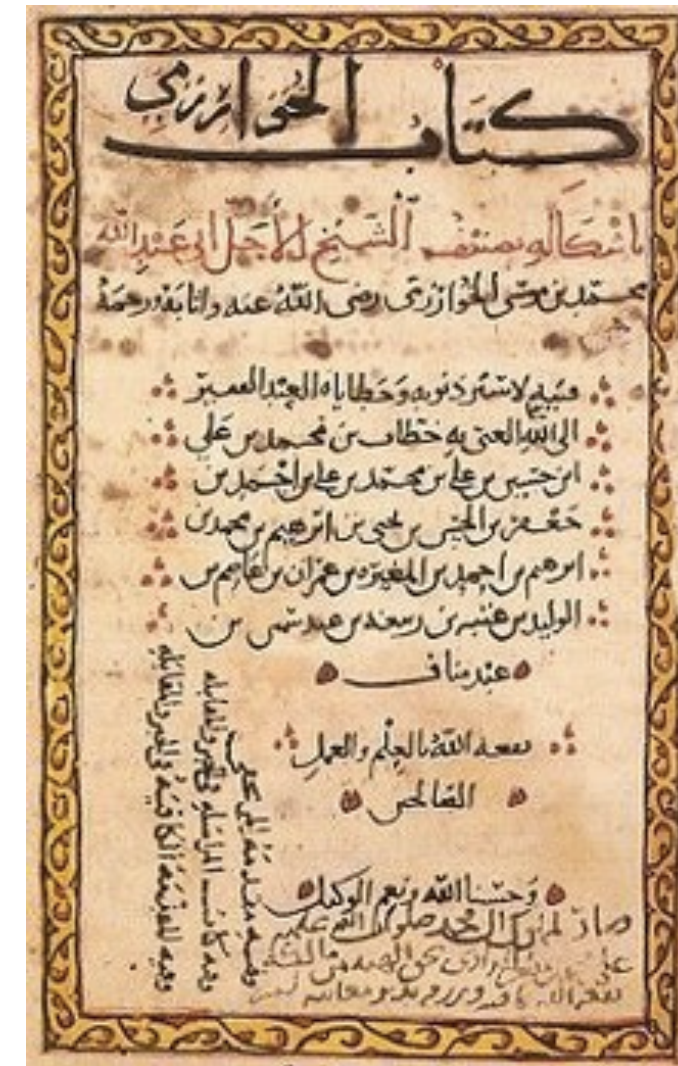 كتاب الخوارزمي
باشكاله تصنيف الشيخ الأجل ابي عبد الله
محمد بن موسى الخوارزمي رضى الله عنه واثابه ورحمة
لاستر ذنوبه وخطاياه العبد الفقير
الى الله الغنى به خطاب بن محمد بن علي
ابن حسين بن علي بن محمد بن علي بن احمد بن
جعفر بن الحسن بن يحيى بن ابرهيم بن محمد بن
ابرهيم بن احمد بن المغيره بن عمران بن عاصم بن
الوليد بن عتبه بن ربيعه بن عبد شمس بن
عبد مناف
نفعه الله بالعلم والعمل
الصالحين
وحسبنا الله ونعم الوكيل
صار محمد صلوات الله عليهم
وفيه مقدمه
وفيه كتاب والجبر والمقابله
وفيه الكافيه والجبر والمقابله